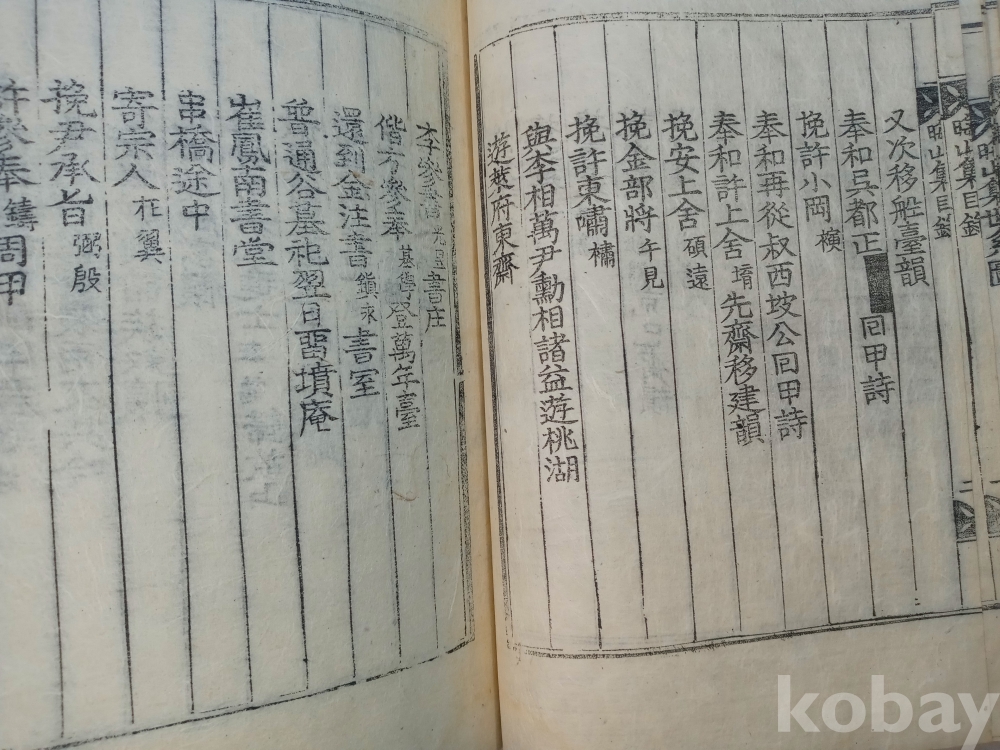 又次移舡臺韻
奉和吳都正 回甲詩
挽許小岡
奉和再從叔西坡公回甲詩
奉和許上舍 堉 先齋移建韻
挽安上舍 碩遠
挽金部將 午見
挽許東嘯 橚
與李相萬尹勳相諸益遊桃湖
遊 府東齋
李參 書庄
偕方參奉 登萬年臺
還到金注書 鎭永 書室
普通谷墓祀翌日留墳庵
崔鳳南書堂
串橋途中
寄宗人 翼
挽尹承旨 弼殷
許參奉 鑄 周甲
kobay